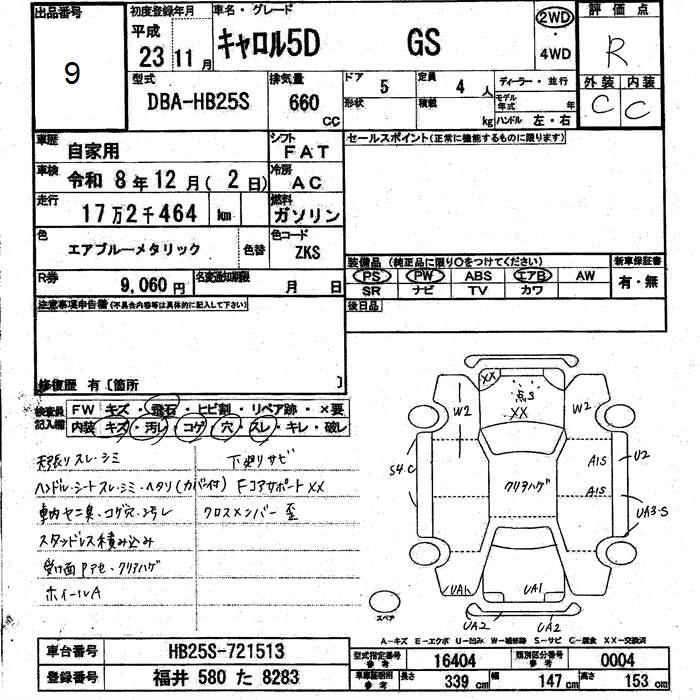 出品番号
9
初度登録年月
平成
23年11月
車名・グレード
キャロル5D GS
2WD
・
4WD
評価点
R
外装 内装
C C
型式
DBA-HB25S
排気量
660
CC
ドア
5
定員
4人
形状
積載
kg
ディーラー・並行
モデル年式 年
ハンドル 左・右
車歴
自家用
シフト
FAT
車検
令和 8年12月(2日)
冷房
AC
走行
17万2千464 km
燃料
ガソリン
色
エアブルーメタリック
色替
色コード
ZKS
R券
9,060円
名変通知期限
月 日
セールスポイント(正常に機能するものに限ります)
装備品(純正品に限り○をつけてください)
PS PW ABS エアB AW
SR ナビ TV カワ
新車保証書
有・無
後日品
注意事項申告欄(不具合内容等は具体的に記入して下さい)
修復歴 有〔箇所 〕
検査員記入欄
FW キズ・飛石・ヒビ割・リペア跡・×要
内装 キズ・汚レ・コゲ・穴・スレ・キレ・破レ
天張りスレ・シミ
下廻りサビ
ハンドル・シートスレ・シミ・ヘタリ(カバー付)
Fコアサポート××
車内ヤニ臭・コゲ穴・汚レ
クロスメンバー歪
スタッドレス積み込み
クリアハゲ
ホイールA
XX
点S
XX
W2
W2
S4.C
クリアハゲ
A1S
U2
A1S
UA3・S
UA1
UA1
UA2
UA2
スペア
A-キズ E-エクボ U-凹み W-補修跡 S-サビ C-腐食 XX-交換済
車台番号
HB25S-721513
登録番号
福井 580 た 8283
型式指定番号
参考
16404
類別区分番号
参考
0004
車庫証明用
参考
長さ 339cm 幅 147cm 高さ 153cm